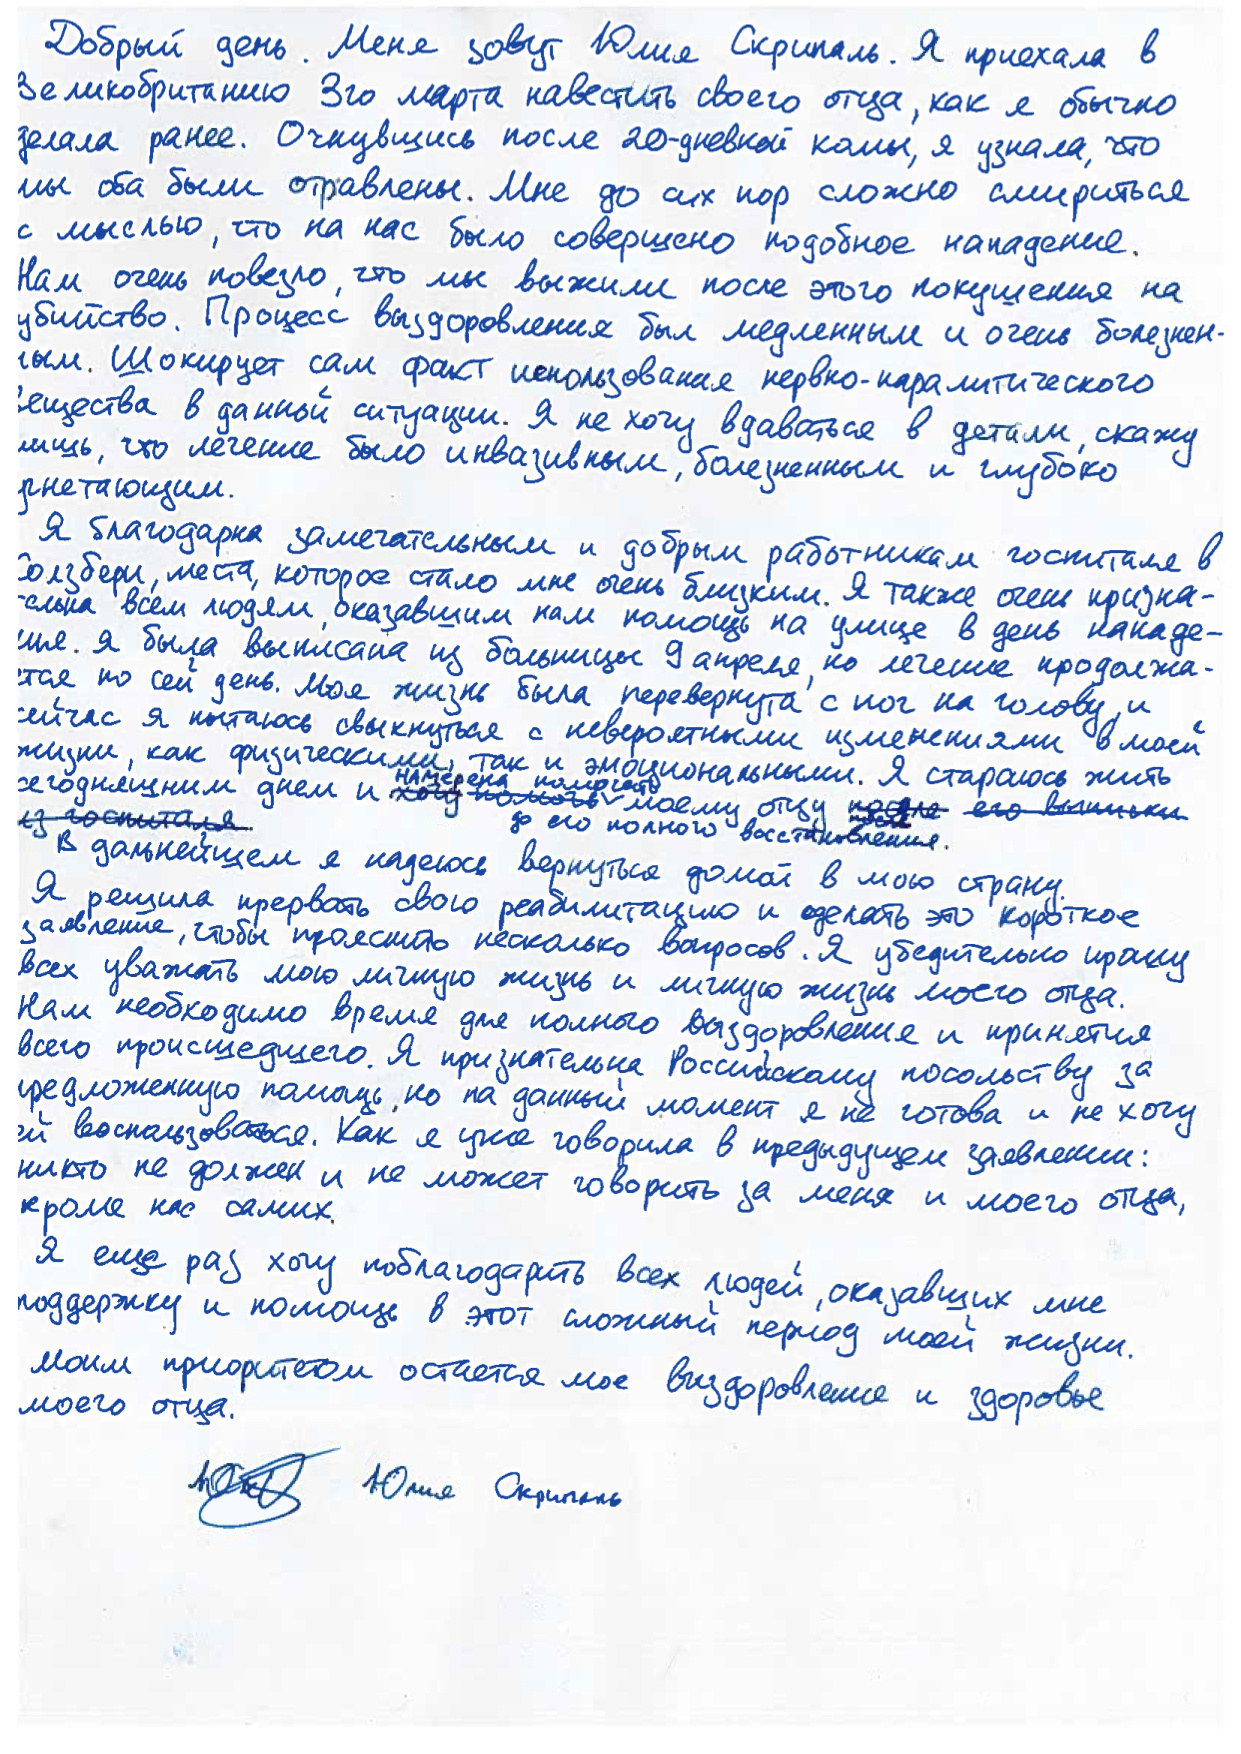 Добрый день. Меня зовут Юлия Скрипаль. Я приехала в
Великобританию 3го марта навестить своего отца, как я обычно
делала ранее. Очнувшись после 20-дневной комы, я узнала, что
мы оба были отравлены. Мне до сих пор сложно смириться
с мыслью, что на нас было совершено подобное нападение.
Нам очень повезло, что мы выжили после этого покушения на
убийство. Процесс выздоровления был медленным и очень болезнен-
ным. Шокирует сам факт использования нервно-паралитического
вещества в данной ситуации. Я не хочу вдаваться в детали, скажу
лишь, что лечение было инвазивным, болезненным и глубоко
угнетающим.
Я благодарна замечательным и добрым работникам госпиталя в
Солзбери, места, которое стало мне очень близким. Я также очень призна-
тельна всем людям, оказавшим нам помощь на улице в день нападе-
ния. Я была выписана из больницы 9 апреля, но лечение продолжа-
ется по сей день. Моя жизнь была перевернута с ног на голову, и
сейчас я пытаюсь свыкнуться с невероятными изменениями в моей
жизни, как физическими, так и эмоциональными. Я стараюсь жить
намерена помогать
сегодняшним днем и хочу помочь моему отцу после его выписки
из госпиталя до его полного восстановления.
В дальнейшем я надеюсь вернуться домой в мою страну.
Я решила прервать свою реабилитацию и сделать это короткое
заявление, чтобы прояснить несколько вопросов. Я убедительно прошу
всех уважать мою личную жизнь и личную жизнь моего отца.
Нам необходимо время для полного выздоровления и принятия
всего происшедшего. Я признательна Российскому посольству за
предложенную помощь, но на данный момент я не готова и не хочу
ей воспользоваться. Как я уже говорила в предыдущем заявлении:
никто не должен и не может говорить за меня и моего отца,
кроме нас самих.
Я еще раз хочу поблагодарить всех людей, оказавших мне
поддержку и помощь в этот сложный период моей жизни.
Моим приоритетом остается мое выздоровление и здоровье
моего отца.
Юлия Скрипаль